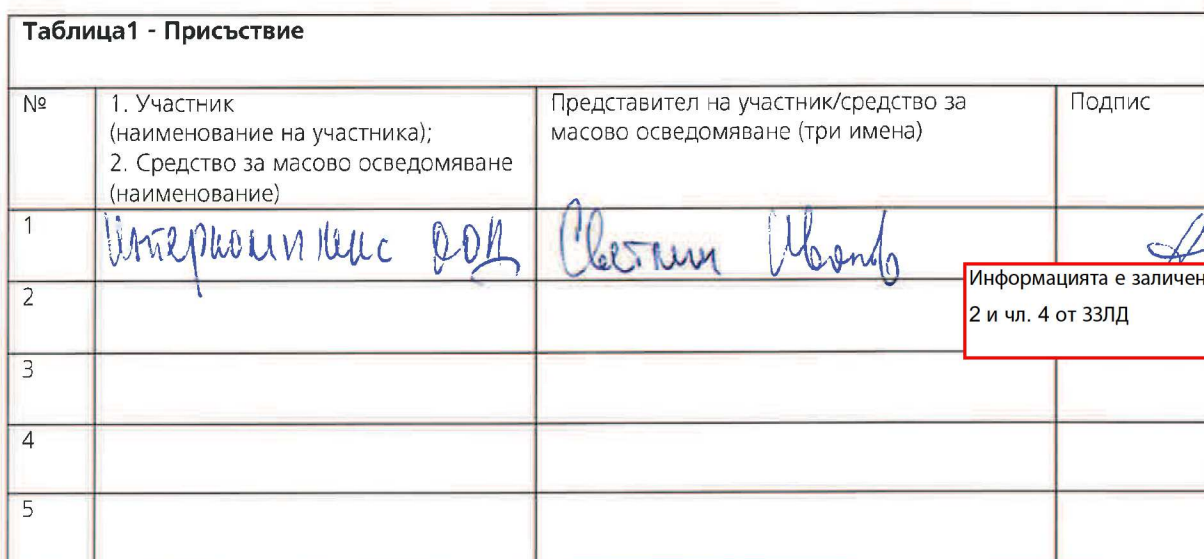 Таблица1 - Присъствие
№
1. Участник
(наименование на участника);
2. Средство за масово осведомяване
(наименование)
Представител на участник/средство за
масово осведомяване (три имена)
Подпис
1
ООД
Светлин
2
Информацията е заличен
2 и чл. 4 от ЗЗЛД
3
4
5